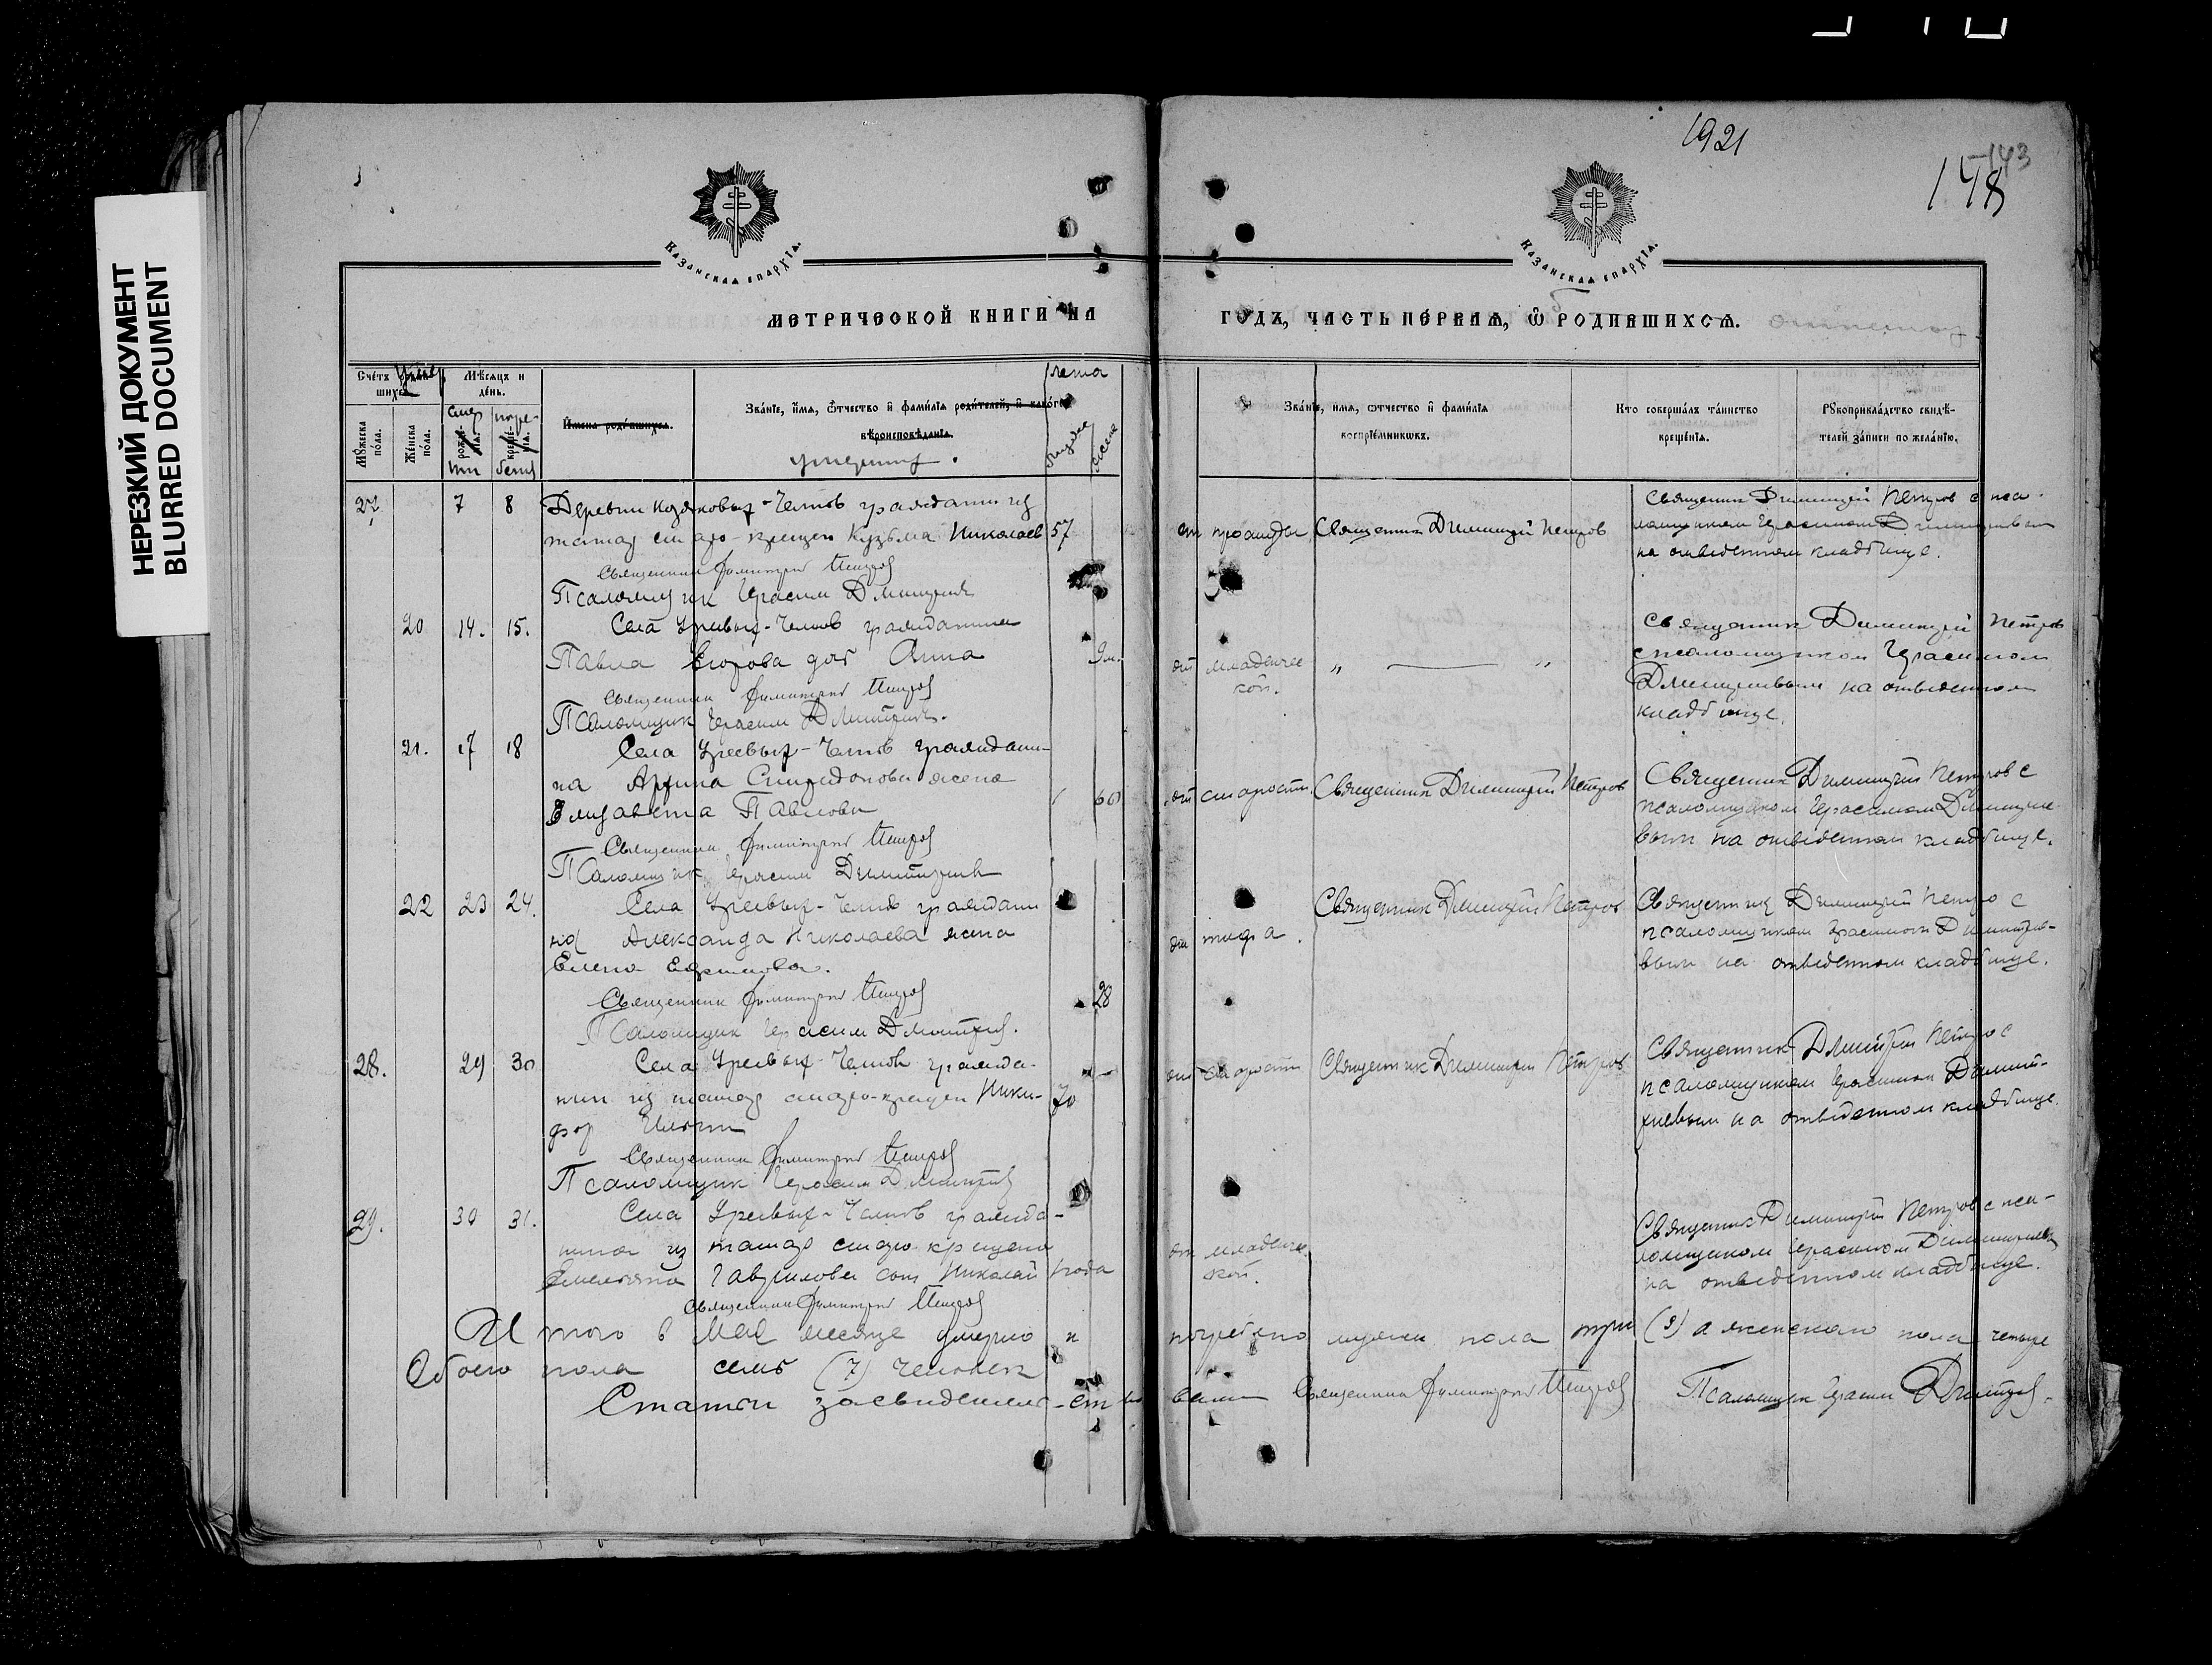 НЕРЕЗКИЙ ДОКУМЕНТ
BLURRED DOCUMENT
1921
143
148
Казанская епархія.
Казанская епархія.
МЕТРИЧЕСКОЙ КНИГИ НА
ГОДЪ, ЧАСТЬ ПЕРВАЯ, Ѡ РОДИВШИХСЯ.
Счетъ
шихся
Мѣсяцъ и
день.
лета
Мужеска
пола.
Женска
пола.
Имена родившихся.
Званіе, имя, ѻтчество и фамилія родителей, и какого
вѣроисповѣданія.
умерших.
Званіе, имя, ѻтчество и фамилія
воспріемниковъ.
Кто совершалъ таинство
крещенія.
Рукоприкладство свидѣ-
телей записи по желанію.
27 7 8 Деревни Козяковых-Челнов граждани из
татар старо-крещен Кузьма Николаев 57
от простуды Священник Димитрий Петров
Священник Димитрий Петров с пса-
ломщиком Герасимом Димитриевым
на отведенном кладбище.
Священник Димитрий Петров
Псаломщик Герасим Дмитриев
20 14. 15. Села -Челнов гражданина
Павла Егорова доч Анна 9 м.
от младенчес
кой.
„ — „
Священник Димитрий Петров
с псаломщиком Герасимом
Дмитриевым на отведенном
кладбище.
Священник Димитрий Петров
Псаломщик Герасим Дмитриев.
21. 17 18 Села -Челнов граждани-
на Спиридонова жена
Елизавета Павлова 60
от старости Священник Димитрий Петров
Священник Димитрий Петров с
псаломщиком Герасимом Димитрие-
вым на отведенном кладбище.
Священник Димитрий Петров
Псаломщик Герасим Димитриев
22 23 24. Села -Челнов граждани
на Александра Николаева жена
Елена Ефимова.
28
от тифа.
Священник Димитрий Петров
Священник Димитрий Петро с
псаломщиком Герасимом Димитрие-
вым на отведенном кладбище.
Священник Димитрий Петров
Псаломщик Герасим Дмитриев.
28. 29 30 Села -Челнов гражда-
нин из татар старо-крещен Ники- 70
фор Ильин
от старости Священник Димитрий Петров
Священник Дмитрий Петро с
псаломщиком Герасимом Димит-
риевым на отведенном кладбище.
Священник Димитрий Петров
Псаломщик Герасим Димитриев
29. 30 31. Села -Челнов гражда-
нина из татар старо крещена
Емельяна Гаврилова сын Николай года
от младенчес
кой.
Священник Димитрий Петров с пса-
ломщиком Герасимом Димитриевым
на отведенном кладбище.
Священник Димитрий Петров
Итого в Мае месяце умерло и погребено мужска пола три (3) а женскаго пола четыре
Обоего пола семь (7) человек
Статьи засвидетельствовали Священник Димитрий Петров Псаломщик Герасим Дмитриев.